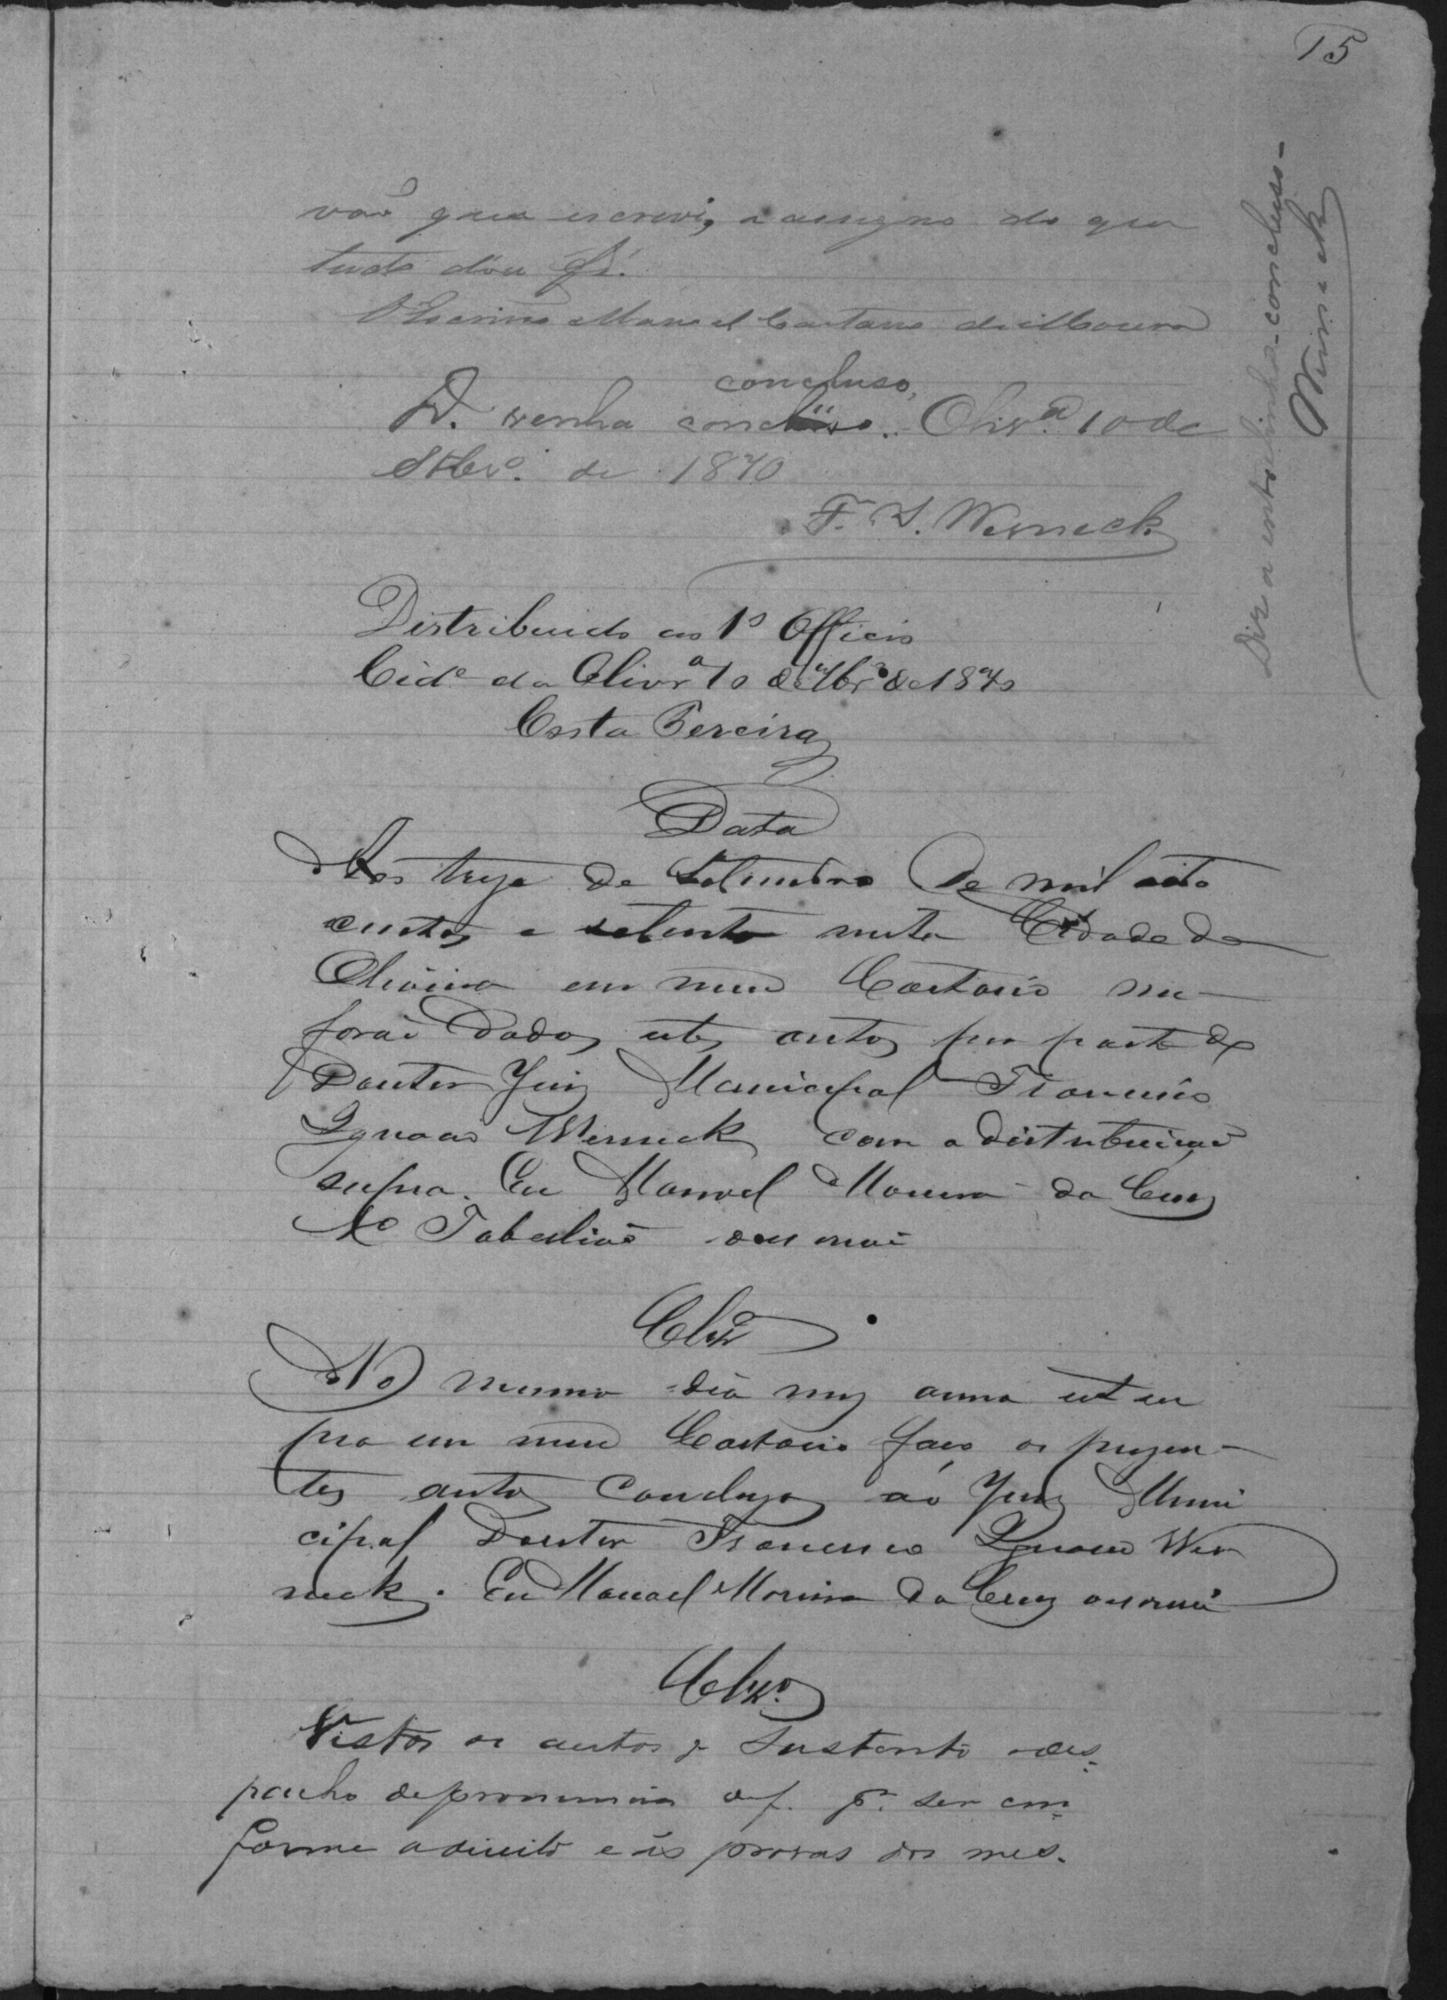 15
vaõ que escrevi, e assigno do que
tudo dou fé.
O Escrivaõ Manoel Caetano de Moura
concluso,
D. venha concluso. Olivr.ª 10 de
Setbr.º de 1870
F. I. Werneck
Diz a entrelinha - concluso -
Werneck
Distribuido ao 1º Officio
Cid.e da Olivr.ª 10 de 7br.º de 1870
Costa Pereira
Data
Aos treze de Setembro de mil oito
centos e setenta nesta Cidade da
Oliveira em meu Cartorio me
foraõ dados estes autos por parte do
Doutor Juiz Municipal Francisco
Ignacio Werneck com a distribuiçaõ
supra. Eu Manoel Moreira da Cruz
Tabeliaõ escrevi
Clzº
No mesmo dia mez anno ut su
pra em meu Cartorio faço os prezen-
tes autos concluzos ao Juiz Muni
cipal Doutor Francisco Ignacio Wer
neck. Eu Manoel Moreira da Cruz escrevi
Clzº
Vistos os autos, Sustento o des-
pacho de pronuncia de f. pr. ser con-
forme a direito e ás provas dos mes-